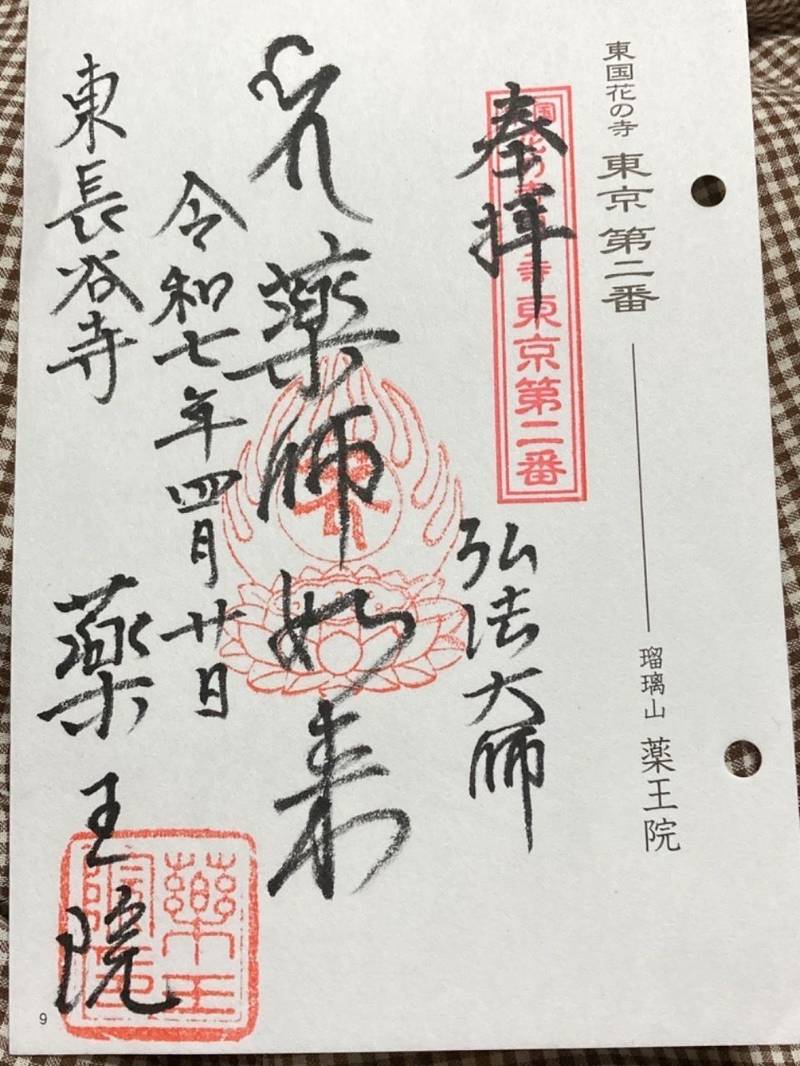 東国花の寺 東京 第二番 瑠璃山 薬王院
奉拝 弘法大師
東京第二番
薬師如来
令和七年四月廿日
東長谷寺 薬王院
薬王
9